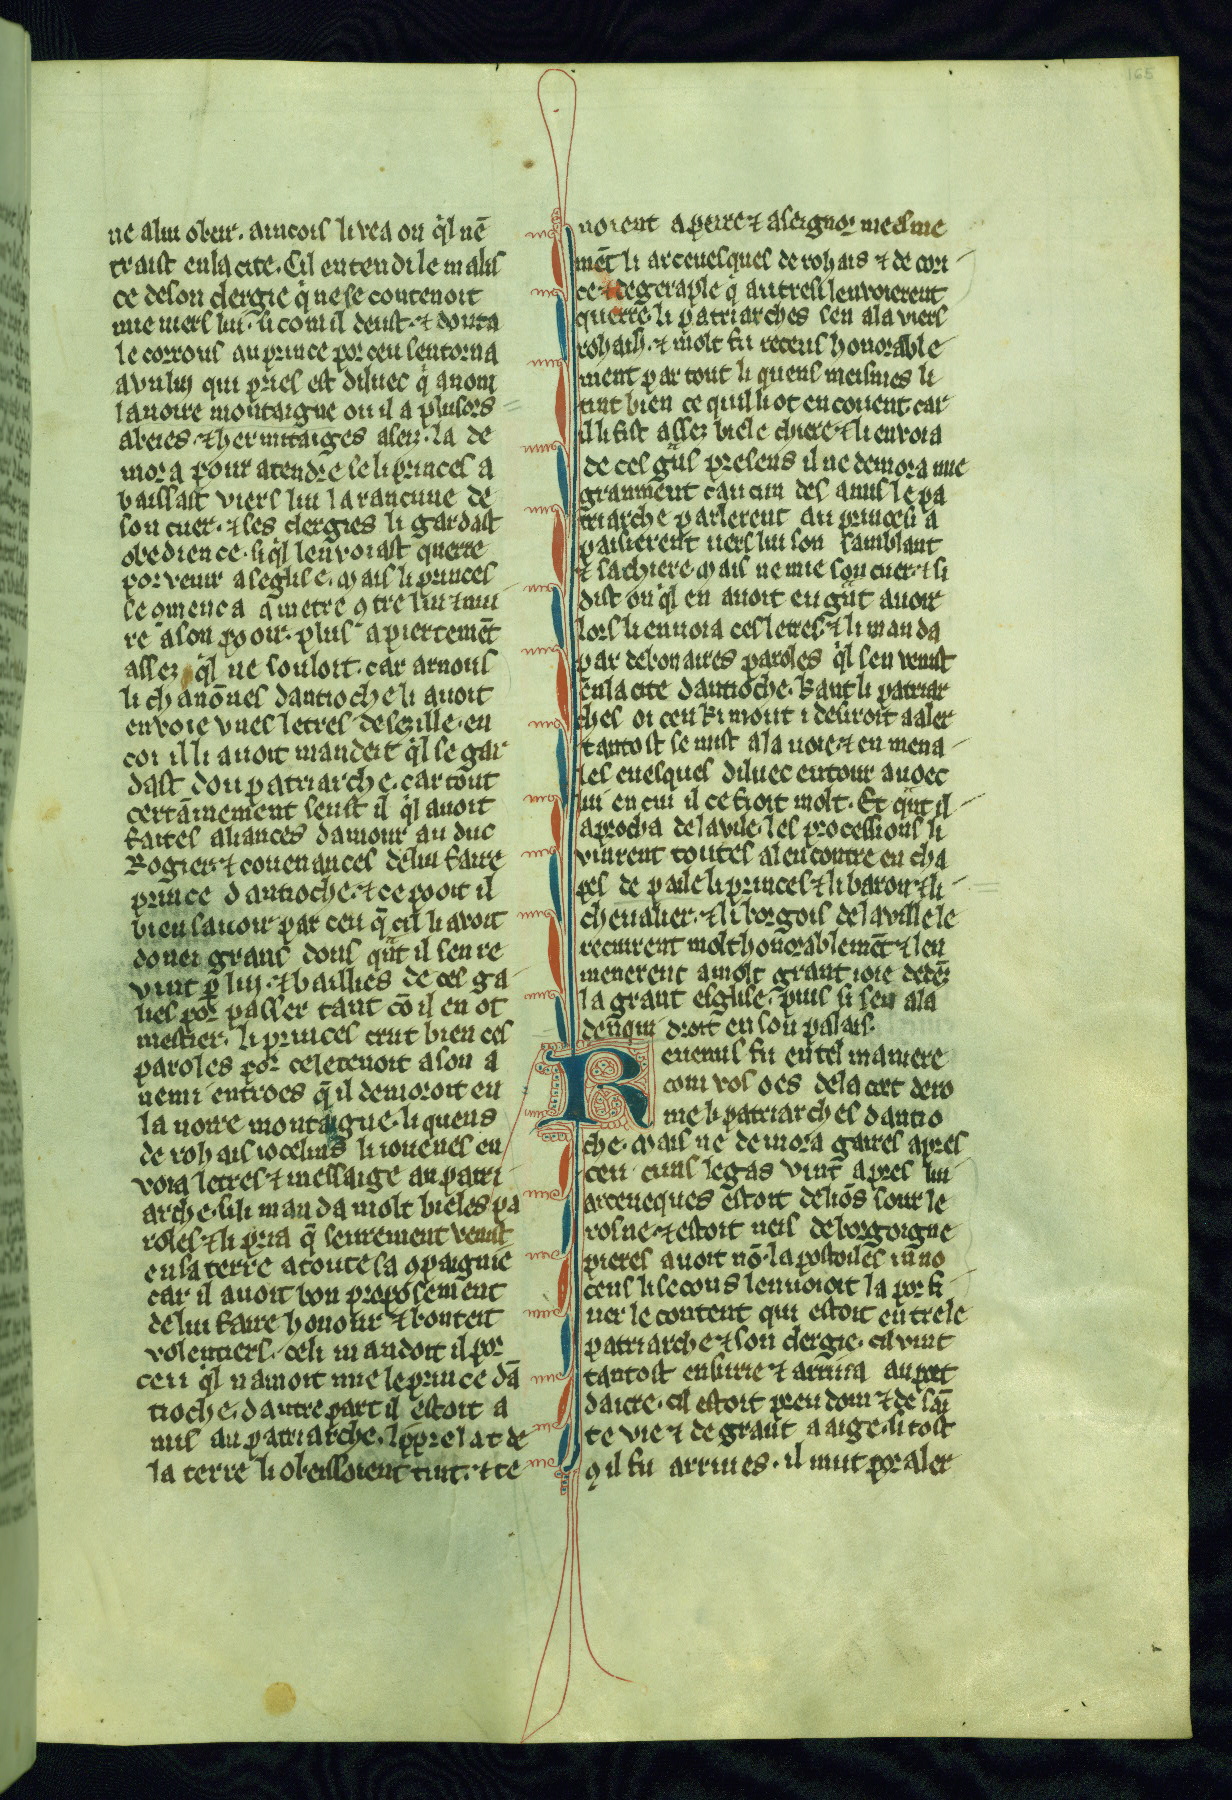 165
ne alui obeir. aincois li vea on ql nē
traist en la cite. Cil entendi le malis
ce de son clergie q̇ ne se contenoit
mie viers lui. si com il deust. ⁊ douta
le corrous au prince por ceu sentorna
a vn liu qui pries est diluec q̇ a nom
la noire montaigne ou il a plusors
abeies ⁊ hermitaiges asez. la de
mora pour atendre se li princes a
baissast viers lui la rancune de
son cuer. ⁊ ses clergies li gardast
obedience. si ql lenvoiast querre
por venir a seglise. mais li princes
se gmenca a metre gtre lui ⁊ nui
re a son pooir. plus apiertemēt
assez ql ne souloit. car arnous
li chanōnes dantioche li avoit
envoie vnes letres de sezille. en
coi il li avoit mandeit ql se gar
dast dou patriarche. car tout
certainement seust il ql avoit
faites aliances damour au duc
Rogier. ⁊ couenances de lui faire
prince dantioche. ⁊ ce pooit il
bien savoir par ceu q̄ cil li avoit
donei grans dons qūt il sen re
vint p̱ lui. ⁊ baillies de ces ga
lies por passer tant cō il en ot
mestier. li princes crut bien ces
paroles por ce le tenoit a son a
nemi entroes q̄ il demoroit en
la noire montaigne. li quens
de rohais iocelins li iouenes en
voia letres ⁊ messaige au patri
arche. si li manda molt bieles pa
roles. ⁊ li pria q̄ seurement venist
en sa terre a toute sa gpaignie
car il avoit bon proposement
de lui faire honour ⁊ bonteit
volentiers. ce li mandoit il por
ceu ql namoit mie le prince dā
tioche. dautre part il estoit a
mis au patriarche. li prelat de
la terre li obeissoient tuit. ⁊ te
noient a peire ⁊ a seignor meesme
mēt li arcevesques de rohais ⁊ de cori
ce ⁊ de geraple q̇ autresi lenvoierent
querre. li patriarches sen ala viers
rohais. ⁊ molt fu receus honorable
ment par tout li quens meismes li
tint bien ce quil li ot en covent car
il li fist assez biele chiere ⁊ li envoia
de ces gūs presens il ne demora mie
granment caucun des amis le pa
triarche parlerent au prince si a
paisierent viers lui son samblant
⁊ sa chiere. mais ne mie son cuer. ⁊ si
dist on ql en avoit eu gūt avoir
lors li envoia ces letres. ⁊ li manda
par debonaires paroles ql sen venist
en la cite dantioche. Kant li patriar
ches oi ceu ki mout i desiroit a aler
tantost se mist a la voie ⁊ en mena
les evesques diluec entour avoec
lui en cui il ce fioit molt. Et qūt il
aprocha de la vile. les processions li
vinrent toutes a lencontre en cha
pes de paile li princes ⁊ li baron ⁊ li
chevalier. ⁊ li borgois de la ville le
recuirent molt honorablemēt ⁊ len
menerent a molt grant ioie dedēz
la grant esglise. puis si sen ala
denqui droit en son palais.
Revenus fu en tel maniere
com vos oes de la cort de ro
me li patriarches dantio
che. mais ne demora gaires apres
ceu cuns legas vint apres lui
arceveques estoit de liōs sour le
rosne. ⁊ estoit neis de borgoigne
pieres avoit nō. lapostoiles inno
cens li secons lenvoioit la por fi
ner le content qui estoit entre le
patriarche ⁊ son clergie. cil vint
tantost en surie ⁊ arriva au port
daicre. cil estoit preudom ⁊ de sai
te vie ⁊ de grant aaige. si tost
g il fu arrives. il mut por aler